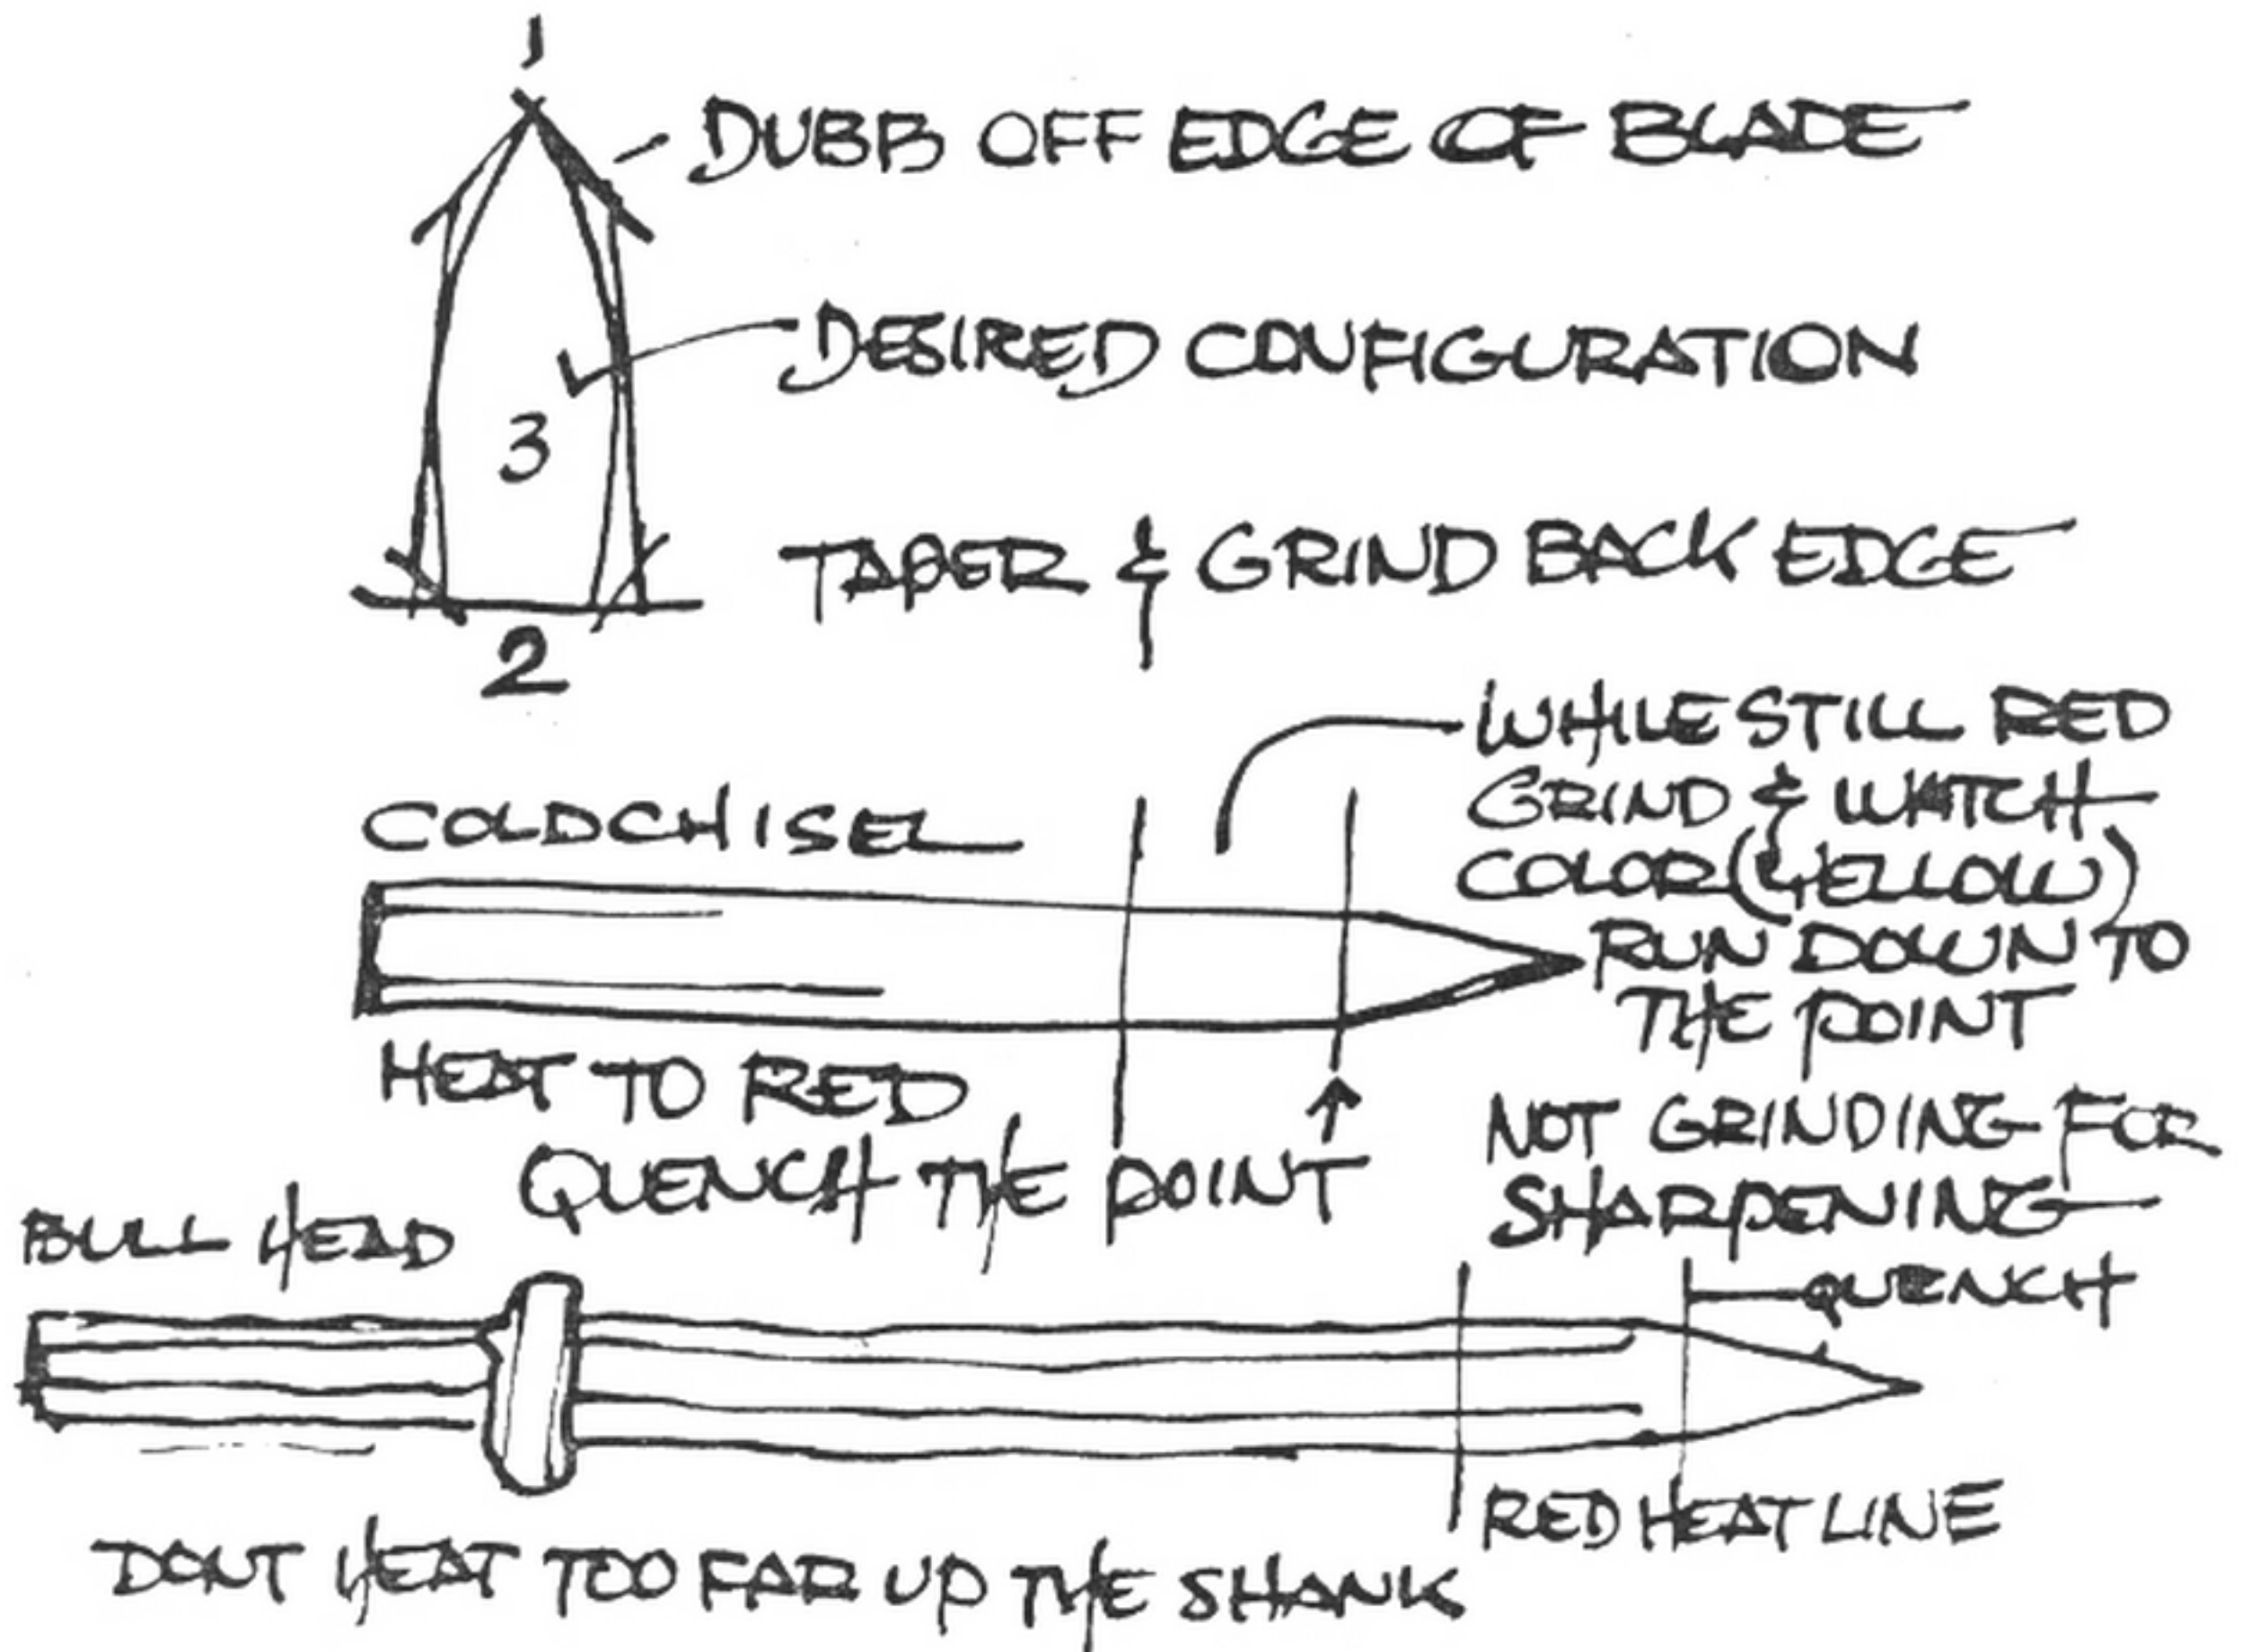 1
DUBB OFF EDGE OF BLADE
DESIRED CONFIGURATION
3
TAPER & GRIND BACK EDGE
2
WHILE STILL RED
GRIND & WATCH
COLOR (YELLOW)
RUN DOWN TO
THE POINT
COLD CHISEL
HEAT TO RED
QUENCH THE POINT
NOT GRINDING FOR
SHARPENING
BULL HEAD
QUENCH
RED HEAT LINE
DONT HEAT TOO FAR UP THE SHANK